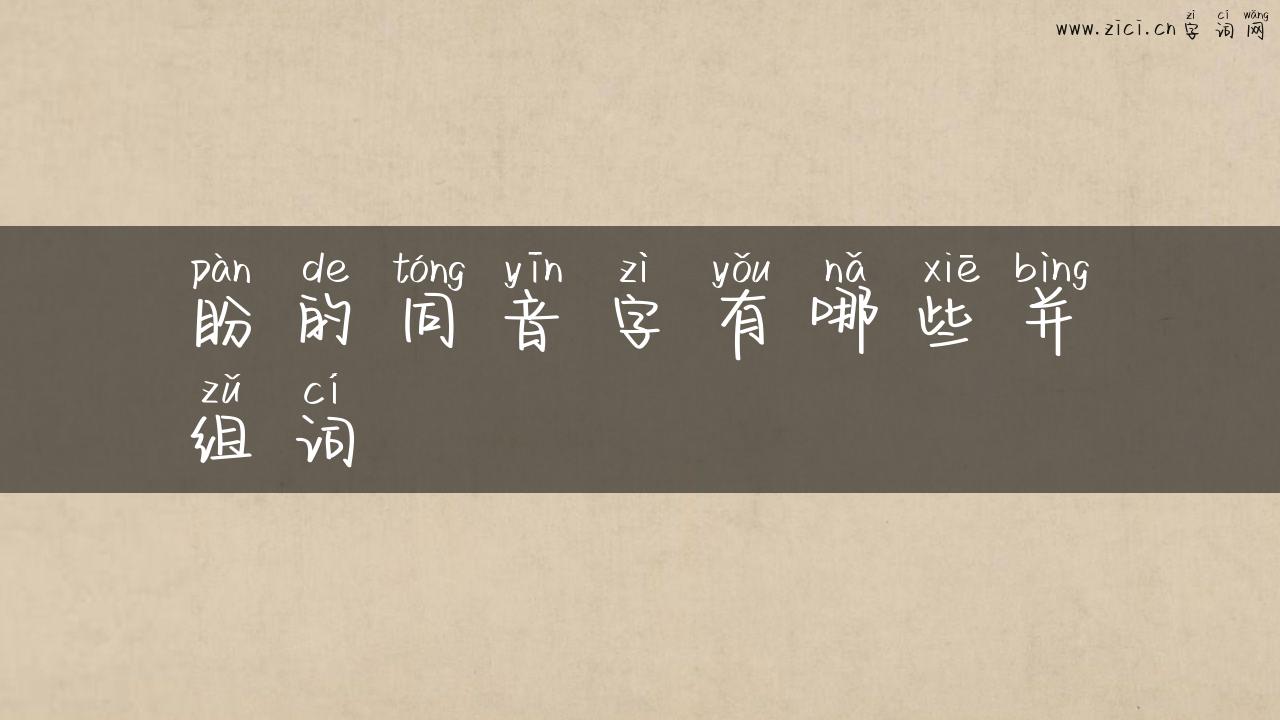 zì cí wǎng
www.zici.cn 字词网
pàn de tóng yīn zì yǒu nǎ xiē bìng
盼的同音字有哪些并
zǔ cí
组词